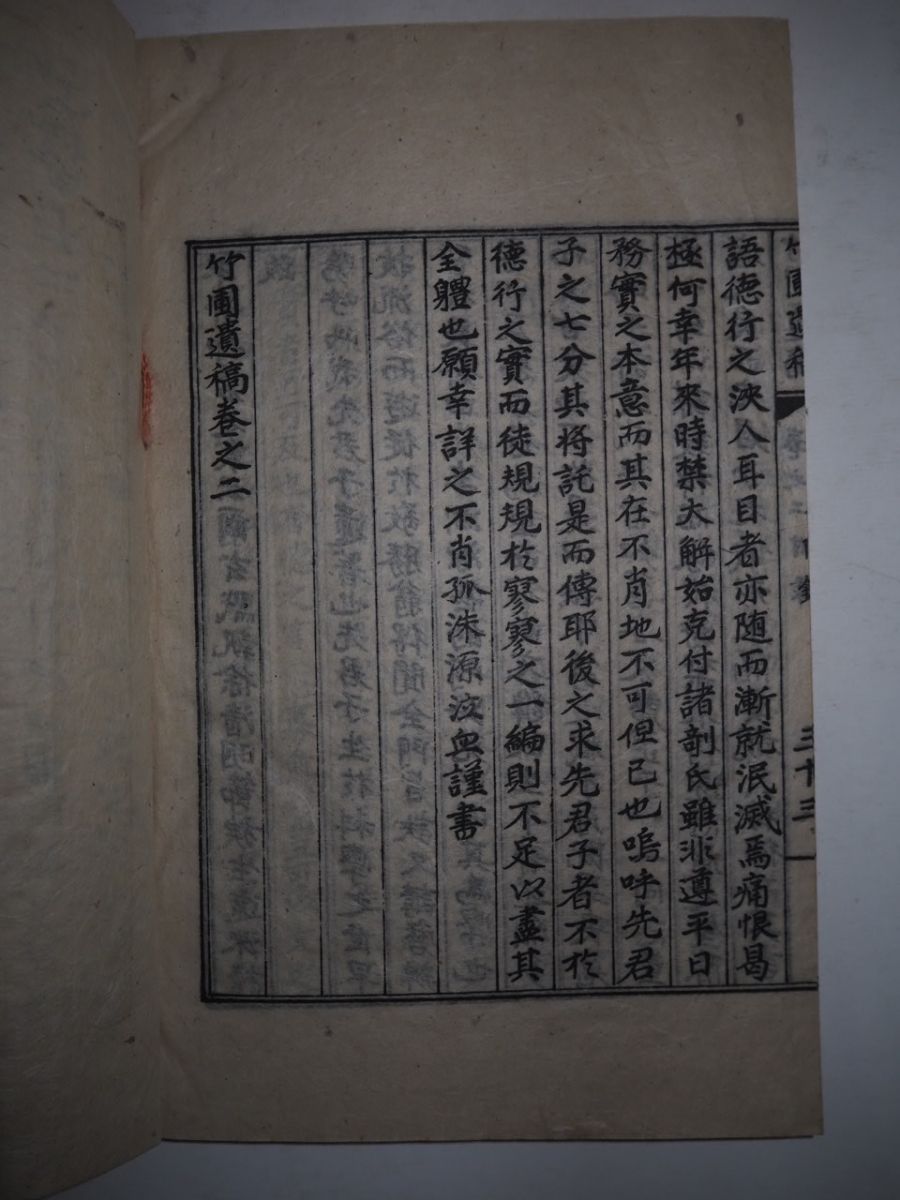 竹圃遺稿 卷之二 三十三
語德行之浹人耳目者亦随而漸就泯滅焉痛恨曷
極何幸年來時禁大解始克付諸剞氏雖非遵平日
務實之本意而其在不肖地不可但已也嗚呼先君
子之七分其将託是而傳耶後之求先君子者不於
德行之實而徒規規於寥寥之一編則不足以盡其
全軆也願幸詳之不肖孤洙源泣血謹書
竹圃遺稿卷之二